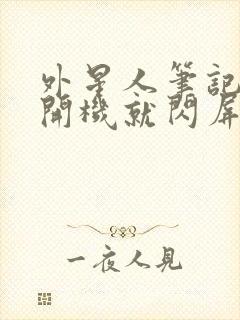 外星人筆記
開機就閃屏
一夜人見